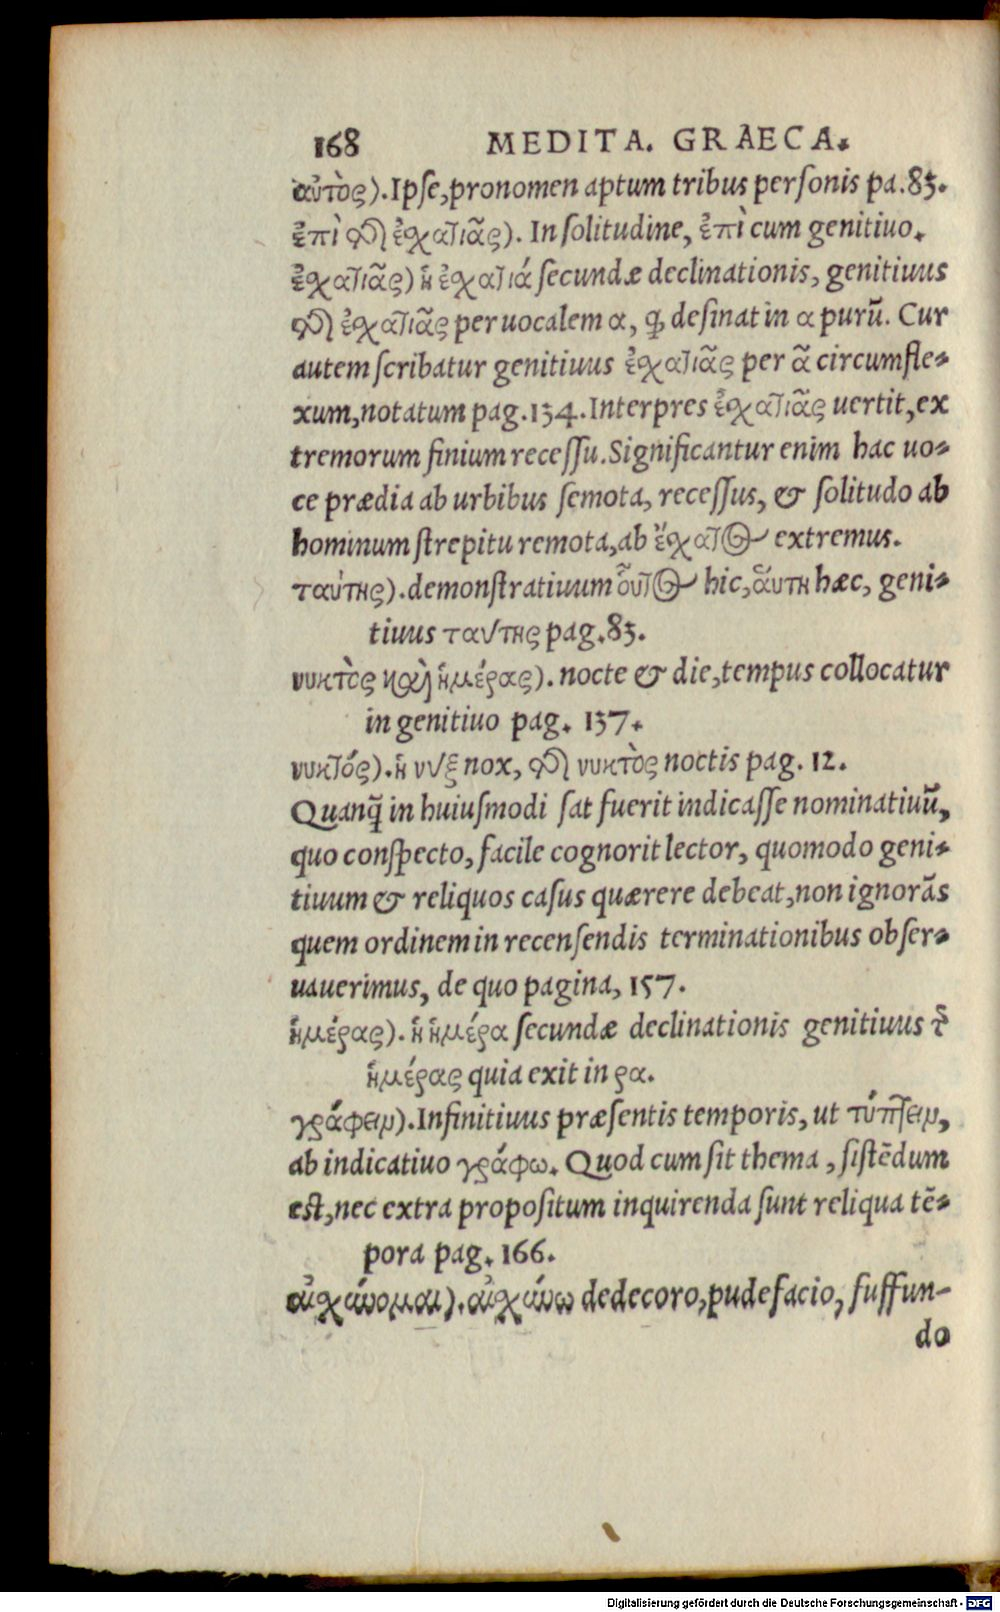 168 MEDITA. GRAECA.
αὐτὸς). Ipse, pronomen aptum tribus personis pa.83.
ἐπὶ τῆς ἐσχατιᾶς). In solitudine, ἐπὶ cum genitiuo.
ἐσχατιᾶς) ἡ ἐσχατιά secundæ declinationis, genitiuus
τῆς ἐσχατιᾶς per uocalem α, ꝙ desinat in α purū. Cur
autem scribatur genitiuus ἐσχατιᾶς per ᾶ circumfle-
xum, notatum pag.134. Interpres ἐσχατιᾶς uertit, ex
tremorum finium recessu. Significantur enim hac uo-
ce prædia ab urbibus semota, recessus, & solitudo ab
hominum strepitu remota, ab ἔσχατος extremus.
ταύτης). demonstratiuum οὗτος hic, αὕτη hæc, geni-
tiuus ταύτης pag.83.
νυκτὸς καὶ ἡμέρας). nocte & die, tempus collocatur
in genitiuo pag. 137.
νυκτός). ἡ νύξ nox, τῆς νυκτὸς noctis pag. 12.
Quanq̃ in huiusmodi sat fuerit indicasse nominatiuū,
quo conspecto, facile cognorit lector, quomodo geni-
tiuum & reliquos casus quærere debeat, non ignorãs
quem ordinem in recensendis terminationibus obser-
uauerimus, de quo pagina, 157.
ἡμέρας). ἡ ἡμέρα secundæ declinationis genitiuus τῆς
ἡμέρας quia exit in ρα.
γράφειν). Infinitiuus præsentis temporis, ut τύπτειν,
ab indicatiuo γράφω. Quod cum sit thema, sistēdum
est, nec extra propositum inquirenda sunt reliqua tē-
pora pag. 166.
αἰσχύνομαι). αἰσχύνω dedecoro, pudefacio, suffun-
do
Digitalisierung gefördert durch die Deutsche Forschungsgemeinschaft - DFG